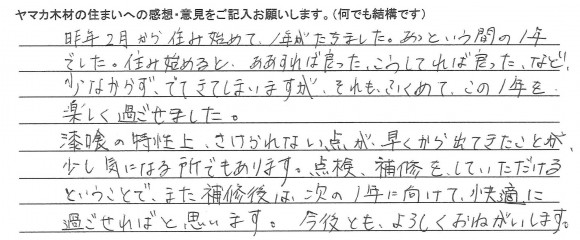 ヤマカ木材の住まいへの感想・意見をご記入お願いします。（何でも結構です）
昨年2月から住み始めて、1年がたちました。あっという間の1年
でした。住み始めると、ああすれば良った、こうしてれば良った、など、
少なからず、でてきてしまいますが、それも、ふくめて、この1年を
楽しく過ごせました。
漆喰の特性上、さけられない点が、早くから出てきたことが、
少し気になる所でもあります。点検、補修を、していただける
ということで、また補修後は、次の1年に向けて、快適に
過ごせればと思います。今後とも、よろしくおねがいします。